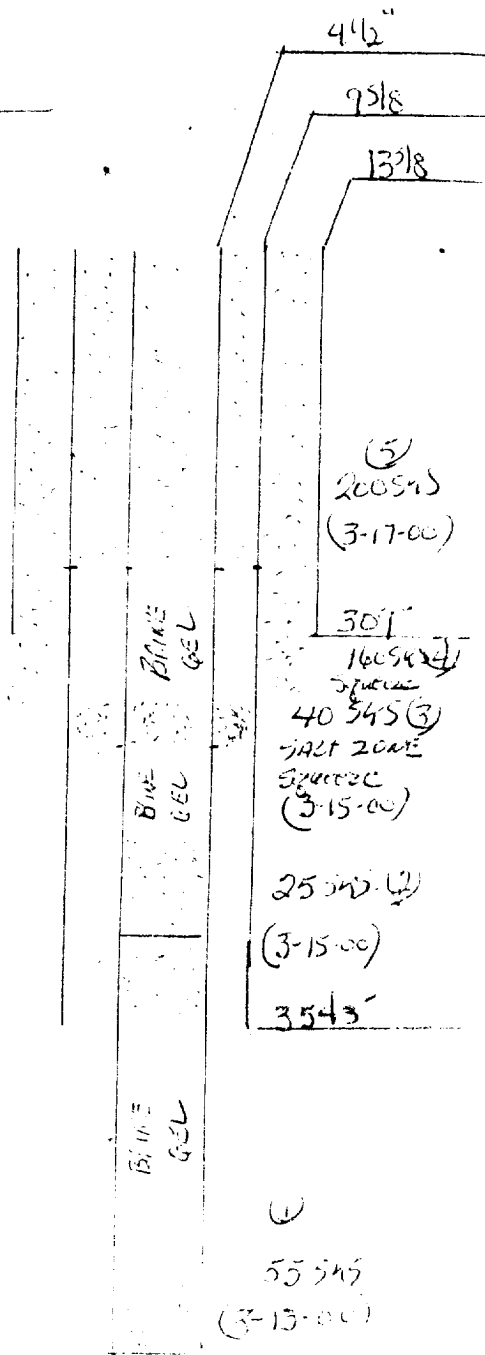 4 1/2"
9 5/8
13 3/8
(5)
200 SXS
(3-17-00)
307'
160 SXS (4)
Squeeze
40 SXS (3)
SALT ZONE
SQUEEZE
(3-15-00)
25 SXS (2)
(3-15-00)
3543'
(1)
55 SXS
(3-13-00)
BRINE
GEL
BRINE
GEL
BRINE
GEL